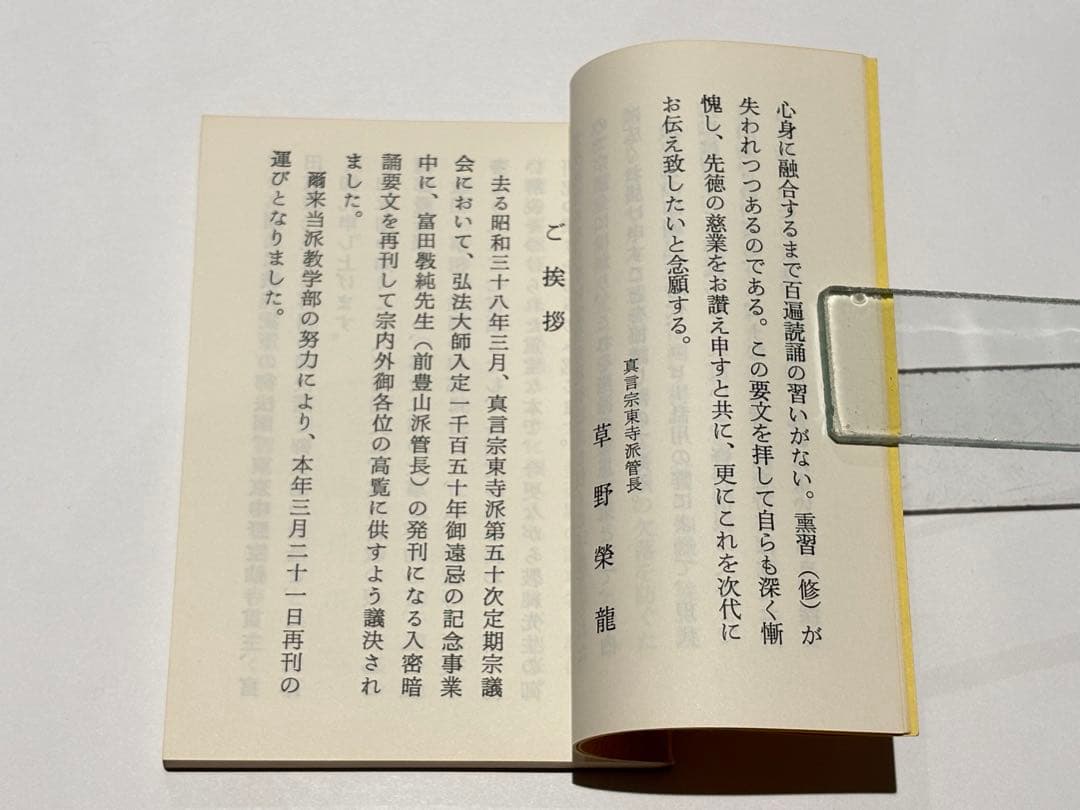 心身に融合するまで百遍読誦の習いがない。熏習（修）が
失われつつあるのである。この要文を拝して自らも深く慚
愧し、先徳の慈業をお讃え申すと共に、更にこれを次代に
お伝え致したいと念願する。
真言宗東寺派管長
草野榮龍
ご挨拶
去る昭和三十八年三月、真言宗東寺派第五十次定期宗議
会において、弘法大師入定一千百五十年御遠忌の記念事業
中に、富田斅純先生（前豊山派管長）の発刊になる入密暗
誦要文を再刊して宗内外御各位の高覧に供すよう議決され
ました。
爾来当派教学部の努力により、本年三月二十一日再刊の
運びとなりました。